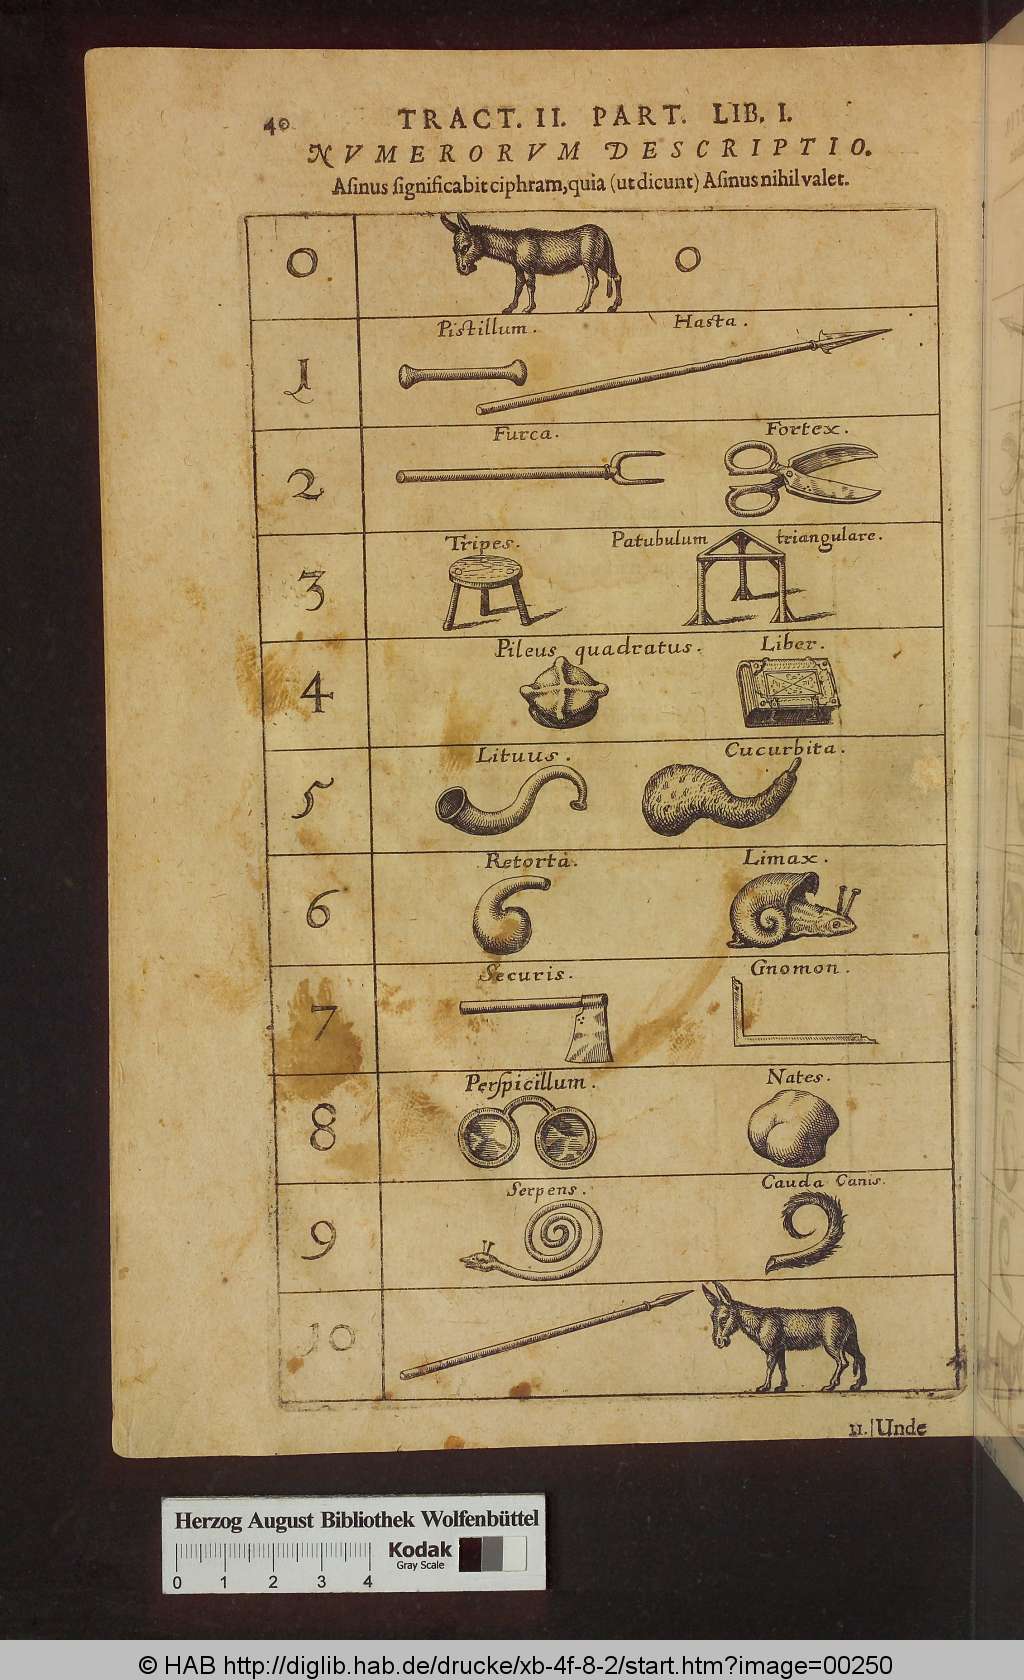 40
TRACT. II. PART. LIB. I.
NVMERORVM DESCRIPTIO.
Aſinus ſignificabit ciphram, quia (ut dicunt) Aſinus nihil valet.
0 0
Pistillum. Hasta.
1
Furca. Fortex.
2
Tripes. Patubulum triangulare.
3
Pileus quadratus. Liber.
4
Lituus. Cucurbita.
5
Retorta. Limax.
6
Securis. Gnomon.
7
Perſpicillum. Nates.
8
Serpens. Cauda Canis.
9
10
11. Unde
Herzog August Bibliothek Wolfenbüttel
Kodak
Gray Scale
0 1 2 3 4
© HAB http://diglib.hab.de/drucke/xb-4f-8-2/start.htm?image=00250